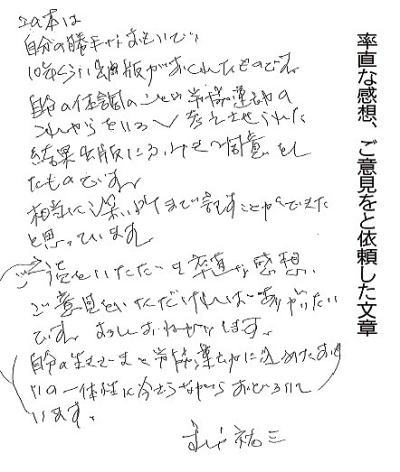 率直な感想、ご意見をと依頼した文章
この本は
自分の勝手なおもいで
10年くらい出版がおくれたものです。
自分の体調のことや労働運動の
これからをいろいろ考えさせられた
結果出版にふみせつ同意をし
たものです。
相当に深い所まで記すことができた
と思っています。
一読をいただいて率直な感想、
ご意見をいただければありがたい
です。よろしくおねがいします。
自分の生きてきた
の一体性に今さらながらおどろいて
います。
祐三